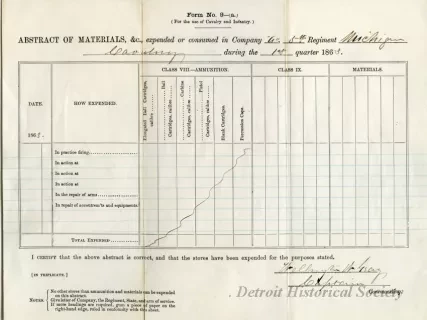 Form No. 9—(a.)
(For the use of Cavalry and Infantry.)
ABSTRACT OF MATERIALS, &c., expended or consumed in Company 5th Regiment Michigan
Cavalry during the 1st quarter 186
CLASS VIII—AMMUNITION.
CLASS IX.
MATERIALS.
DATE.
186
HOW EXPENDED.
Elongated Ball Cartridges, calibre
Ball Cartridges, calibre
Carbine Cartridges, calibre
Pistol Cartridges, calibre
Blank Cartridges.
Percussion Caps.
In practice firing
In action at
In action at
In action at
In the repair of arms
In repair of accoutrements and equipments
TOTAL EXPENDED
I CERTIFY that the above abstract is correct, and that the stores have been expended for the purposes stated.
[IN TRIPLICATE.]
Commanding
NOTES.
No other stores than ammunition and materials can be expended on this abstract.
Give letter of Company, the Regiment, State, and arm of service.
If more headings are required, gum a piece of paper on the right-hand edge, ruled in conformity with this sheet.
© Detroit Historical Society